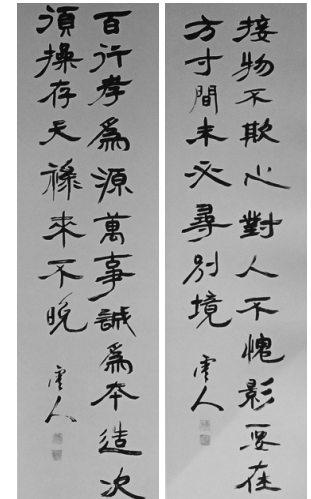 接物不欺心對人不愧影要在
方寸間未必尋別境
百行孝爲源萬事誠爲本造次
須操存天祿來不晚